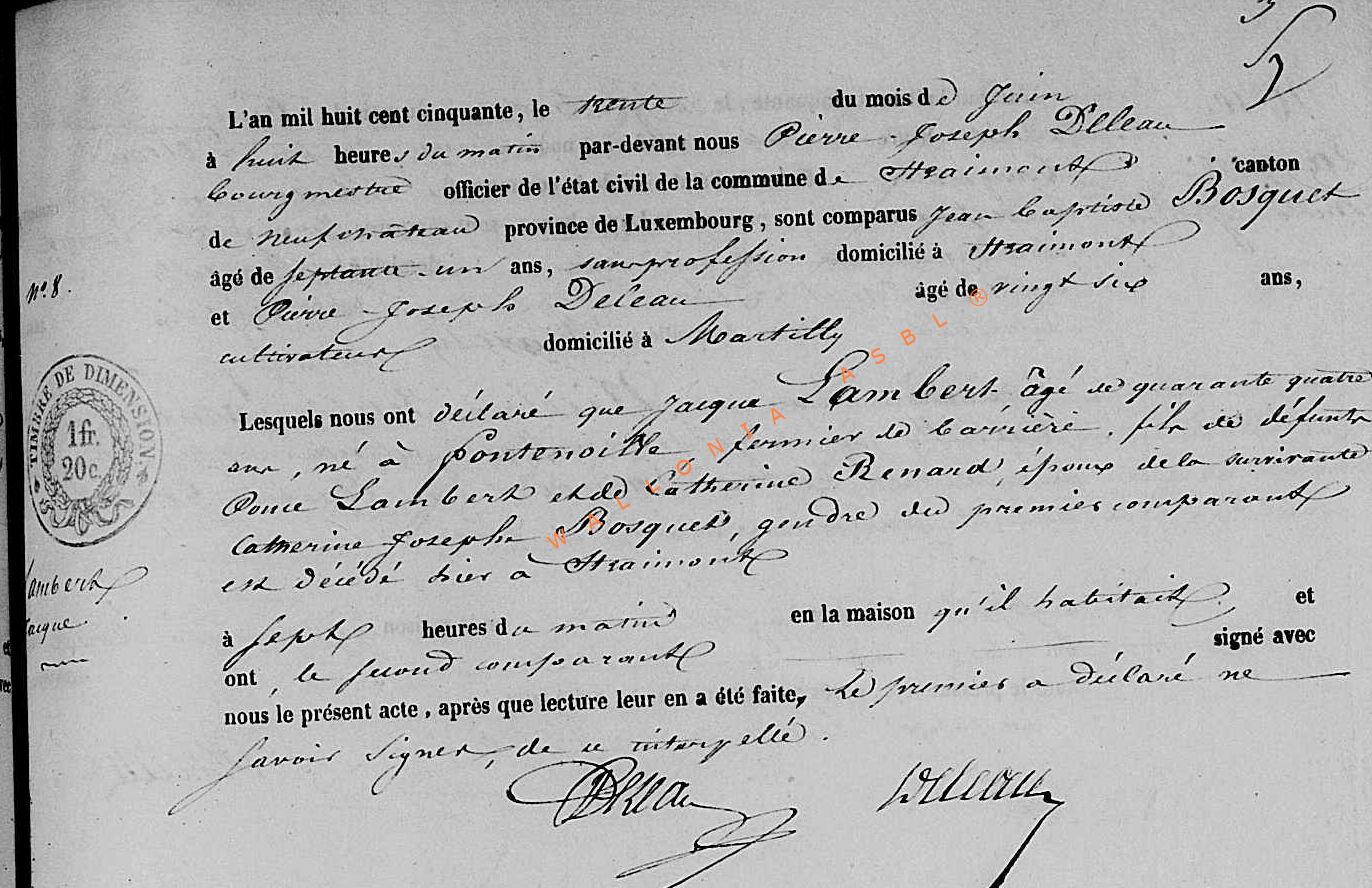 L'an mil huit cent cinquante, le trente du mois de Juin
à huit heures du matin par-devant nous Pierre-Joseph Deleau
bourgmestre officier de l'état civil de la commune de Straimont canton
de neufchateau province de Luxembourg, sont comparus Jean baptiste Bosquet
âgé de septante-un ans, sans profession domicilié à Straimont
et Pierre-Joseph Deleau âgé de vingt six ans,
cultivateur domicilié à Martilly
Lesquels nous ont déclaré que Jacque Lambert âgé de quarante quatre
ans, né à fontenoille, fermier de barrière, fils de défunts
Ponce Lambert et de Catherine Renard, époux de la survivante
Catherine Josephe Bosquet, gendre du premier comparant
est décédé hier à Straimont
à sept heures du matin en la maison qu'il habitait, et
ont, le second comparant signé avec
nous le présent acte, après que lecture leur en a été faite, Le premier a déclaré ne
savoir signer, de ce interpellé.
Deleau Deleau
nº 8.
TIMBRE DE DIMENSION
1 fr.
20 c.
Lambert
Jacque
WALLONIA ASBL ®